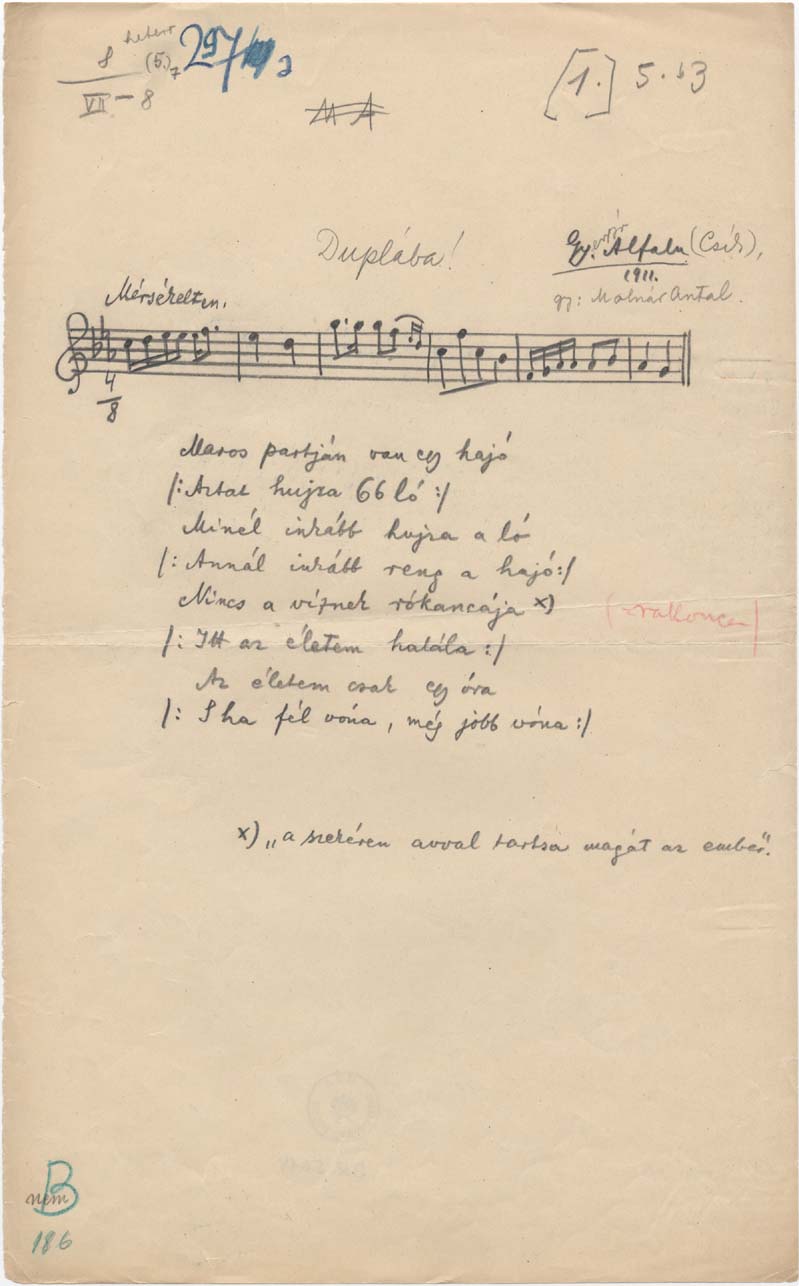 8 heter
(5.)7
VII – 8
297
[1.] 5. b3
MA
Duplába!
Gy. Alfalu (Csík),
1911.
gy: Molnár Antal.
Mérsékelten.
4
8
Maros partján van egy hajó
/: Aztat hujza 66 ló :/
Minél inkább hujza a ló
/: Annál inkább reng a hajó :/
Nincs a víznek rókancája x)
/: Itt az életem halála :/
Az életem csak egy óra
/: S ha fél vóna, még jobb vóna :/
x) „a szekéren avval tartsa magát az ember”.
B
nem
186